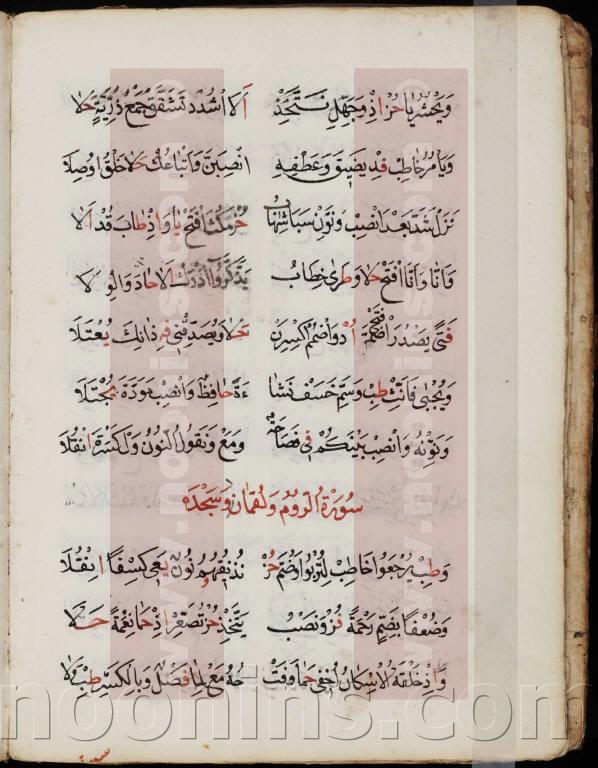 وَيَحْشُرُ يَا حُزْ اِذْ وَجُهِّلَ نَتَّخِذْ الَا اشْدُد تَشَقَّقْ جَمْعُ ذُرِّيَّةٍ حَلَا
وَيَامُرُ خَاطِبْ فِدْ يَضِيقَ وَعَطْفِهِ انْصِبَنَّ وَاَتْبَاعُكَ حَلَا خَلْقُ اُوصِلَا
نَزَلَ شَدَّ بَعْدُ انْصِبْ وَنَوِّنْ سَبَا شِهَابِ حُزْ مَكُثَ افْتَحْ يَا وَاِذْ طَابَ قُدْ اَلَا
وَاَنَّا وَاِنَّا افْتَحْ حَلَا وَطَرَى خِطَابُ يَذَّكَّرُوا ادْرَكَ الَا هَادَ وَالوِلَا
فَتًى يَصْدُرَ افْتَحْ ضُمَّ اُدْ وَاضْمُمْ اكْسِرَنْ حَلَا وَيُصَدِّقْنِي فِهِ ذَانِكَ يُعْتَلَا
وَيُجْبٰى فَاَنِّثْ طِبْ وَسَمِّ خَسَفْ نَشَا ءَةً حَافِظٌ وَانْصِبْ مَوَدَّةَ يُجْتَلَا
وَنَوِّنْهُ وَانْصِبْ بَيْنَكُمْ فِي فَصَاحَةٍ وَمَعْ وَنَقُولُ النُّونُ وَلْ كَسْرَهُ انْقُلَا
سُورَةُ الرُّومِ وَلُقْمَان وَسَجْدَه
وَطِبْ يَرْجِعُوا خَاطِبْ لِتُرْبُوا وَضُمَّ حُزْ نُذِيقَهُمُ نُونٌ يَعِي كِسْفًا انْقُلَا
وَضُعْفًا بِضَمٍّ رَحْمَةً فُزْ وَنَصْبُ يَتَّخِذْ حُزْ تُصَعِّرْ اِذْ حَمَا نِعْمَةً حَلَا
وَاِذْ خَلْقَهُ الْاِسْكَانُ اُخْفِيَ حِمًا وَفَتْ حُهُ مَعْ لِمَا فَصْلٌ وَبِالْكَسْرِ طِبْ وَلَا
noonins.com